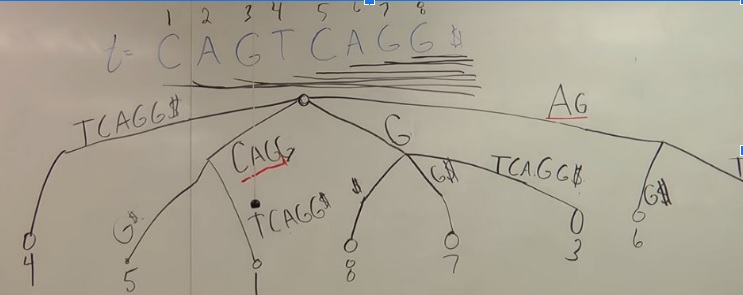 1 2 3 4 5 6 7 8
t= CAGTCAGG$
TCAGG$ CAGG G AG
G$ TCAGG$ $ G$ TCAGG$ G$ T
4 5 1 8 7 3 6